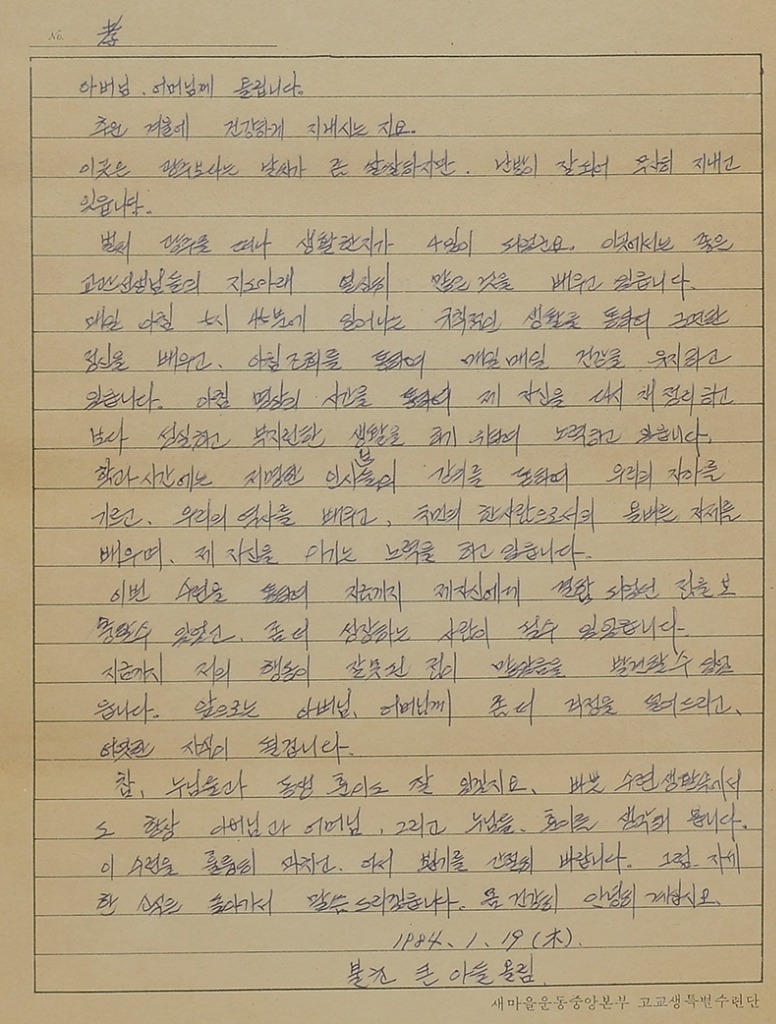 No. 孝
아버님, 어머님께 드립니다.
추운 겨울에 건강하게 지내시는지요.
이곳은 광주보다는 날씨가 좀 쌀쌀하지만, 난방이 잘되어 무사히 지내고
있읍니다.
벌써 광주를 떠나 생활한지가 4일이 되었군요. 이곳에서는 좋은
교관선생님들의 지도아래 열심히 많은 것을 배우고 있읍니다.
매일 아침 5시 45분에 일어나는 규칙적인 생활을 통하여 근면한
정신을 배우고, 아침조회를 통하여 매일매일 건강을 유지하고
있읍니다. 아침 명상의 시간을 통하여 제 자신을 다시 재정리하고
보다 성실하고 부지런한 생활을 하기 위하여 노력하고 있읍니다.
학과시간에는 저명한 인사분들의 강의를 통하여 우리의 자아를
기르고, 우리의 역사를 배우고, 국민의 한사람으로서의 올바른 자세를
배우며, 제 자신을 이기는 노력을 하고 있읍니다.
이번 수련을 통하여 지금까지 제자신에게 결함 되었던 점을 보
충할수 있었고, 좀더 성장하는 사람이 될수 있읍니다.
지금까지 저의 행동이 잘못된 점이 많았음을 발견할 수 있었
읍니다. 앞으로는 아버님, 어머님께 좀더 걱정을 덜어드리고,
자식이 될겁니다.
참, 누님들과 동생 훈이도 잘 있겠지요. 바쁜 수련생활속에서
도 항상 아버님과 어머님, 그리고 누님들, 훈이를 생각해 봅니다.
이 수련을 훌륭히 마치고, 어서 뵙기를 간절히 바랍니다. 그럼, 자세
한 소식은 돌아가서 말씀드리겠읍니다. 몸 건강히 안녕히 계십시오.
1984. 1. 19 (木).
불효 큰 아들 올림
새마을운동중앙본부 고교생특별수련단